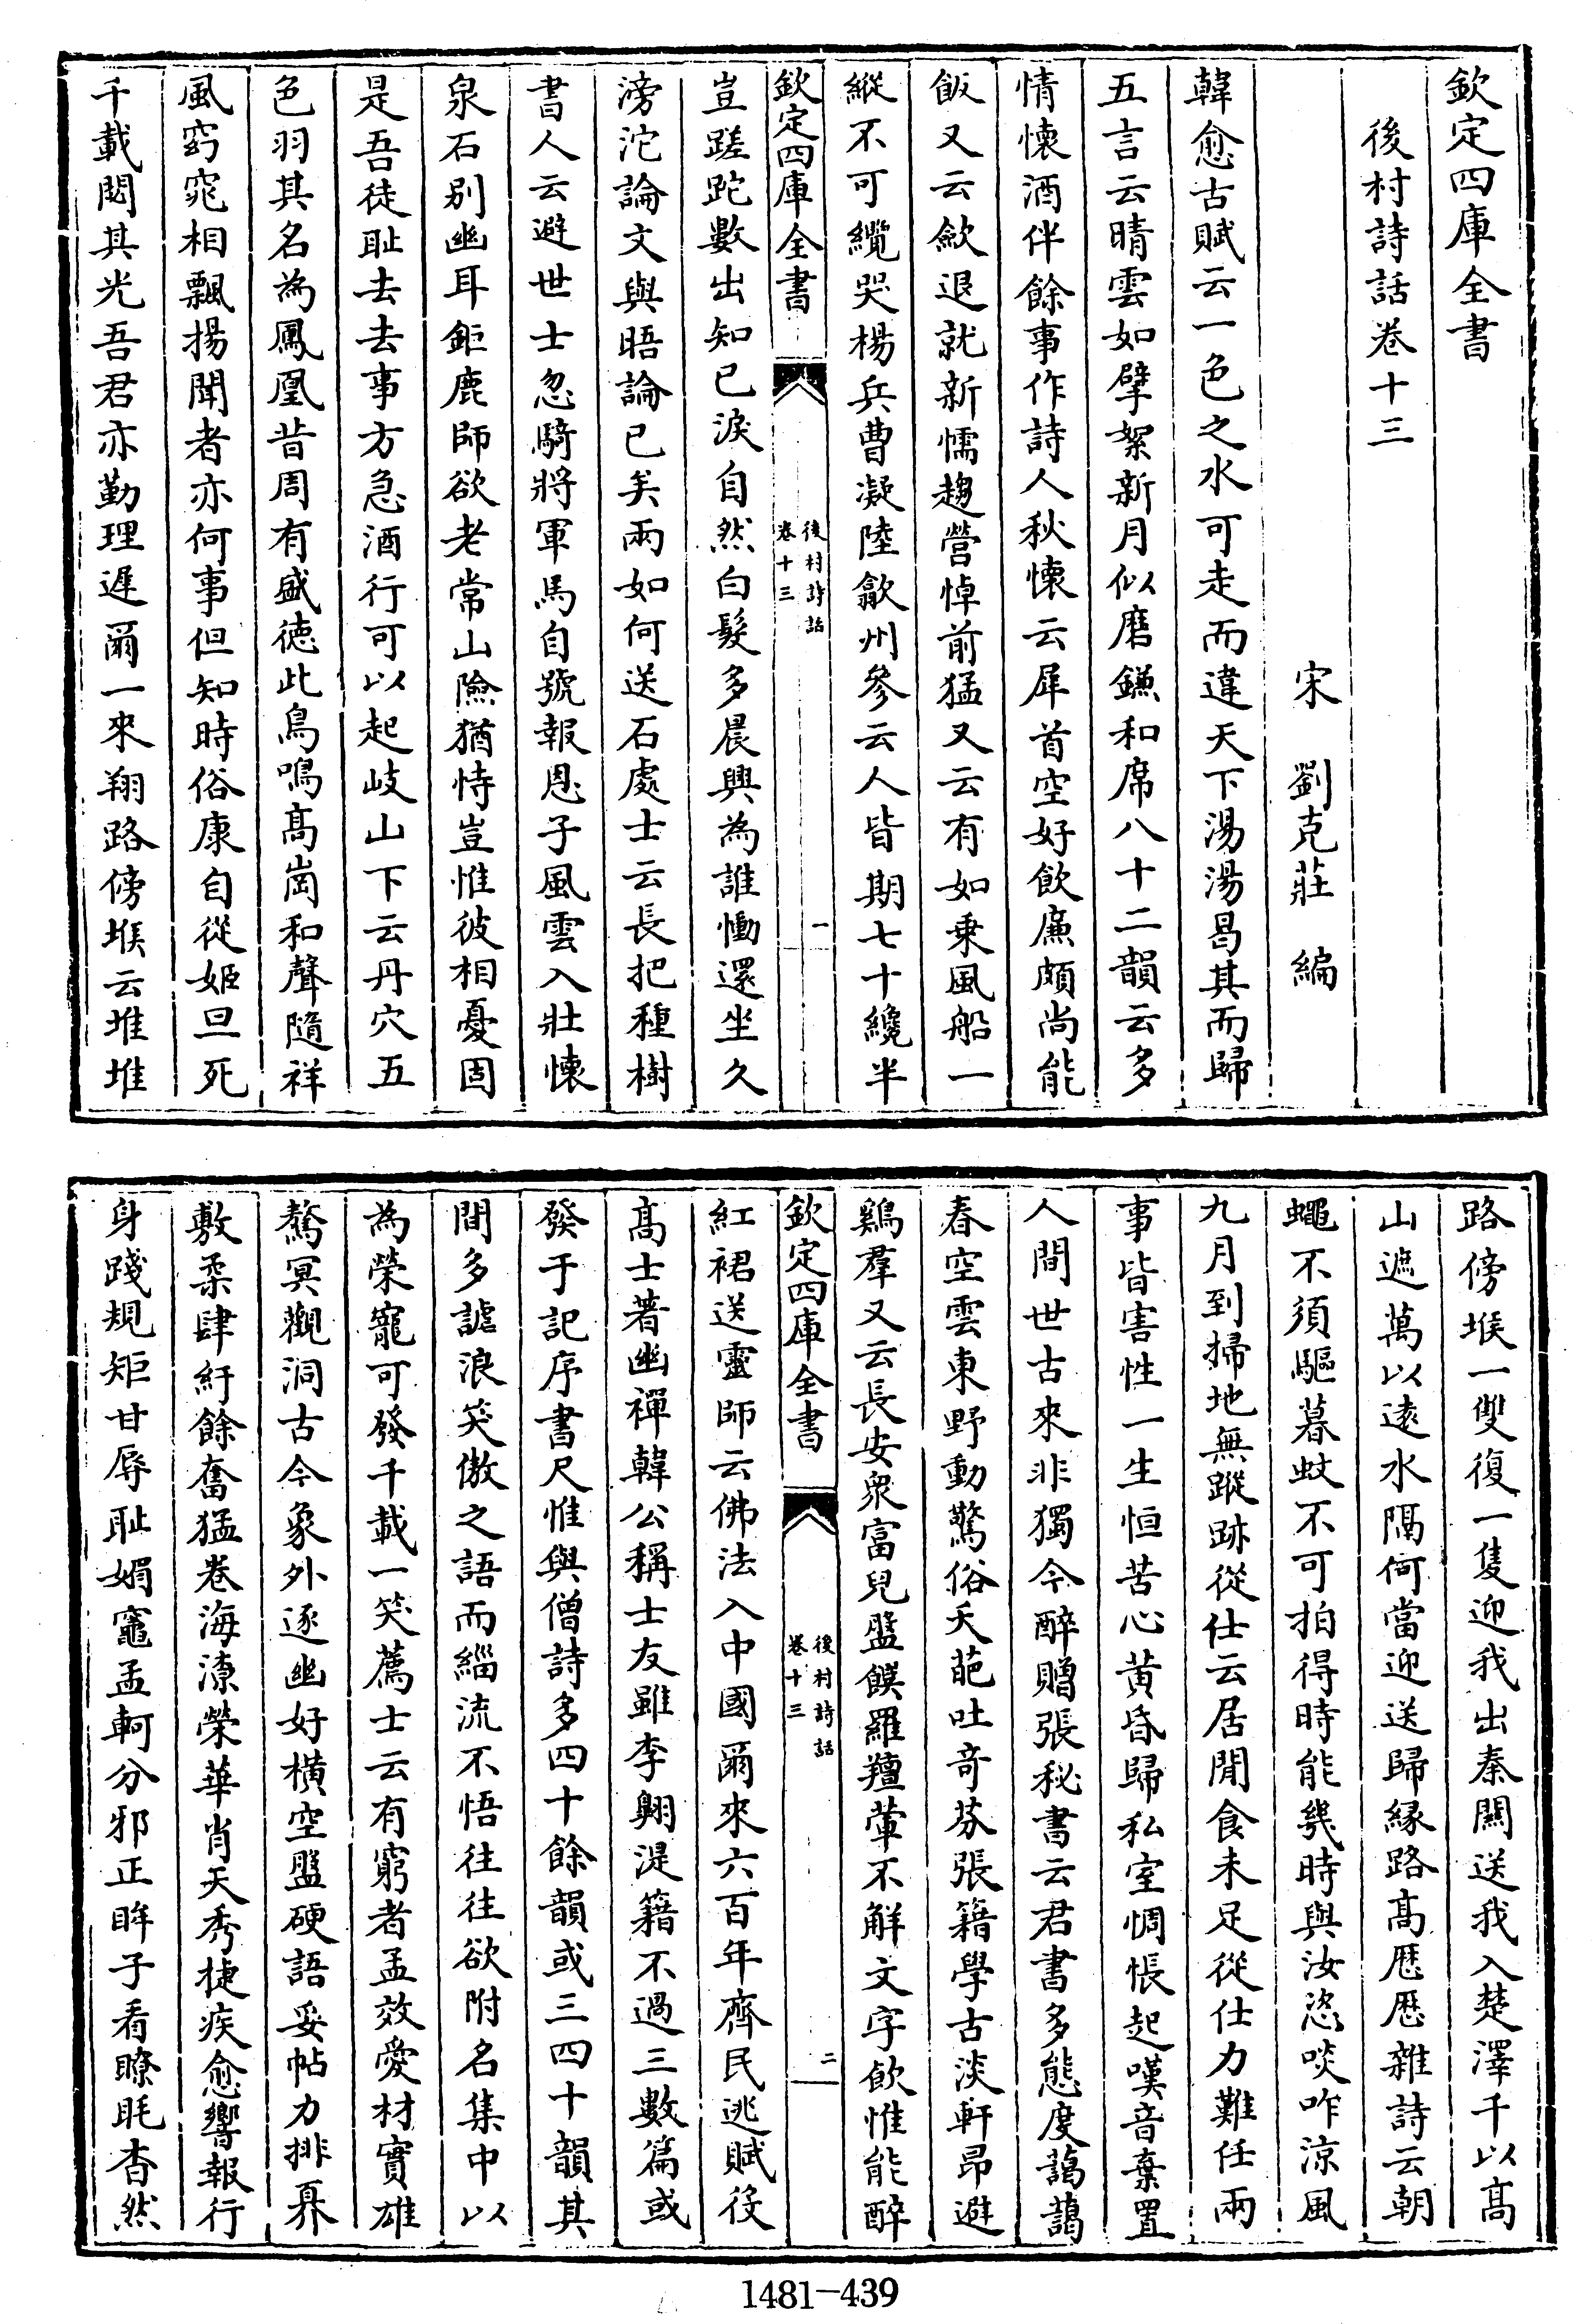 欽定四庫全書
後村詩話卷十三
宋 劉克莊 編
韓愈古賦云一色之水可走而違天下湯湯曷其而歸
五言云晴雲如擘絮新月似磨鎌和席八十二韻云多
情懷酒伴餘事作詩人秋懷云犀首空好飲廉頗尚能
飯又云歛退就新懦趨營悼前猛又云有如乗風船一
縱不可纜哭楊兵曹凝陸歙州參云人皆期七十纔半
欽定四庫全書
後村詩話
卷十三
一
豈蹉跎數出知已淚自然白髮多晨興為誰慟還坐久
滂沱論文與晤論已矣兩如何送石處士云長把種樹
書人云避世士忽騎將軍馬自號報恩子風雲入壯懷
泉石别幽耳鉅鹿師欲老常山險猶恃豈惟彼相憂固
是吾徒耻去去事方急酒行可以起岐山下云丹穴五
色羽其名為鳳凰昔周有盛德此鳥鳴髙崗和聲隨祥
風窈窕相飄揚聞者亦何事但知時俗康自從姬旦死
千載閟其光吾君亦勤理遲爾一來翔路傍堠云堆堆
路傍堠一雙復一隻迎我出秦闗送我入楚澤千以髙
山遮萬以逺水隔何當迎送歸縁路髙歴歴雜詩云朝
蠅不須驅暮蚊不可拍得時能幾時與汝恣啖咋涼風
九月到掃地無蹤跡從仕云居閒食未足從仕力難任兩
事皆害性一生恒苦心黄昏歸私室惆悵起嘆音棄置
人間世古來非獨今醉贈張秘書云君書多態度藹藹
春空雲東野動驚俗天葩吐竒芬張籍學古淡軒昂避
鷄羣又云長安衆富兒盤饌羅羶葷不解文字飲惟能醉
欽定四庫全書
後村詩話
卷十三
二
紅裙送靈師云佛法入中國爾來六百年齊民逃賦役
髙士著幽禪韓公稱士友雖李翺湜籍不過三數篇或
發于記序書尺惟與僧詩多四十餘韻或三四十韻其
間多謔浪笑傲之語而緇流不悟往往欲附名集中以
為榮寵可發千載一笑薦士云有窮者孟郊愛材實雄
驁冥觀洞古今象外逐幽好横空盤硬語妥帖力排奡
敷柔肆紆餘奮猛卷海潦榮華肖天秀㨗疾愈響報行
身踐規矩甘辱耻媚竈孟軻分邪正眸子看瞭眊杳然
1481-439